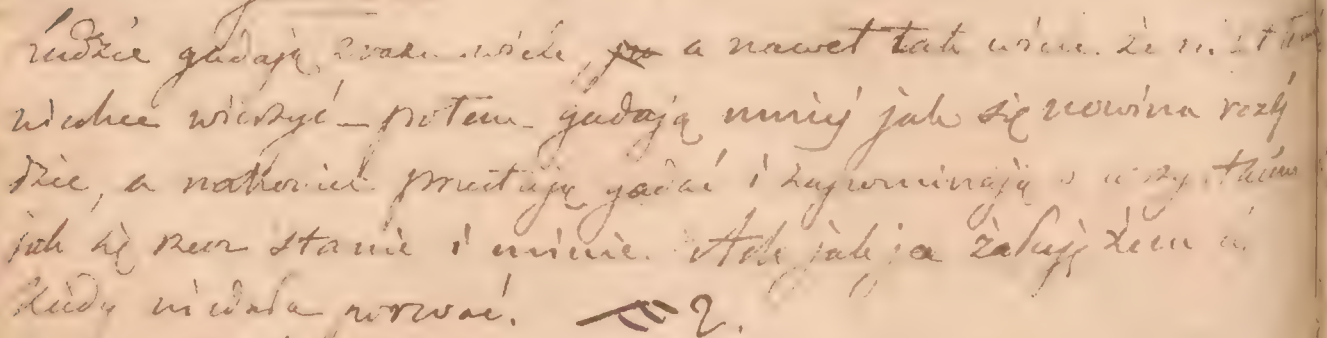 ludzie gadają zrazu wiele, a nawet tak wiele że nikt temu
niechce wierzyć – potem gadają mniéj jak się nowina rozéj
dzie, a nakoniec przestają gadać i zapominają o wszystkiém
jak się rzecz stanie i minie. Ach jak ja żałuję żem
niedała porwać.